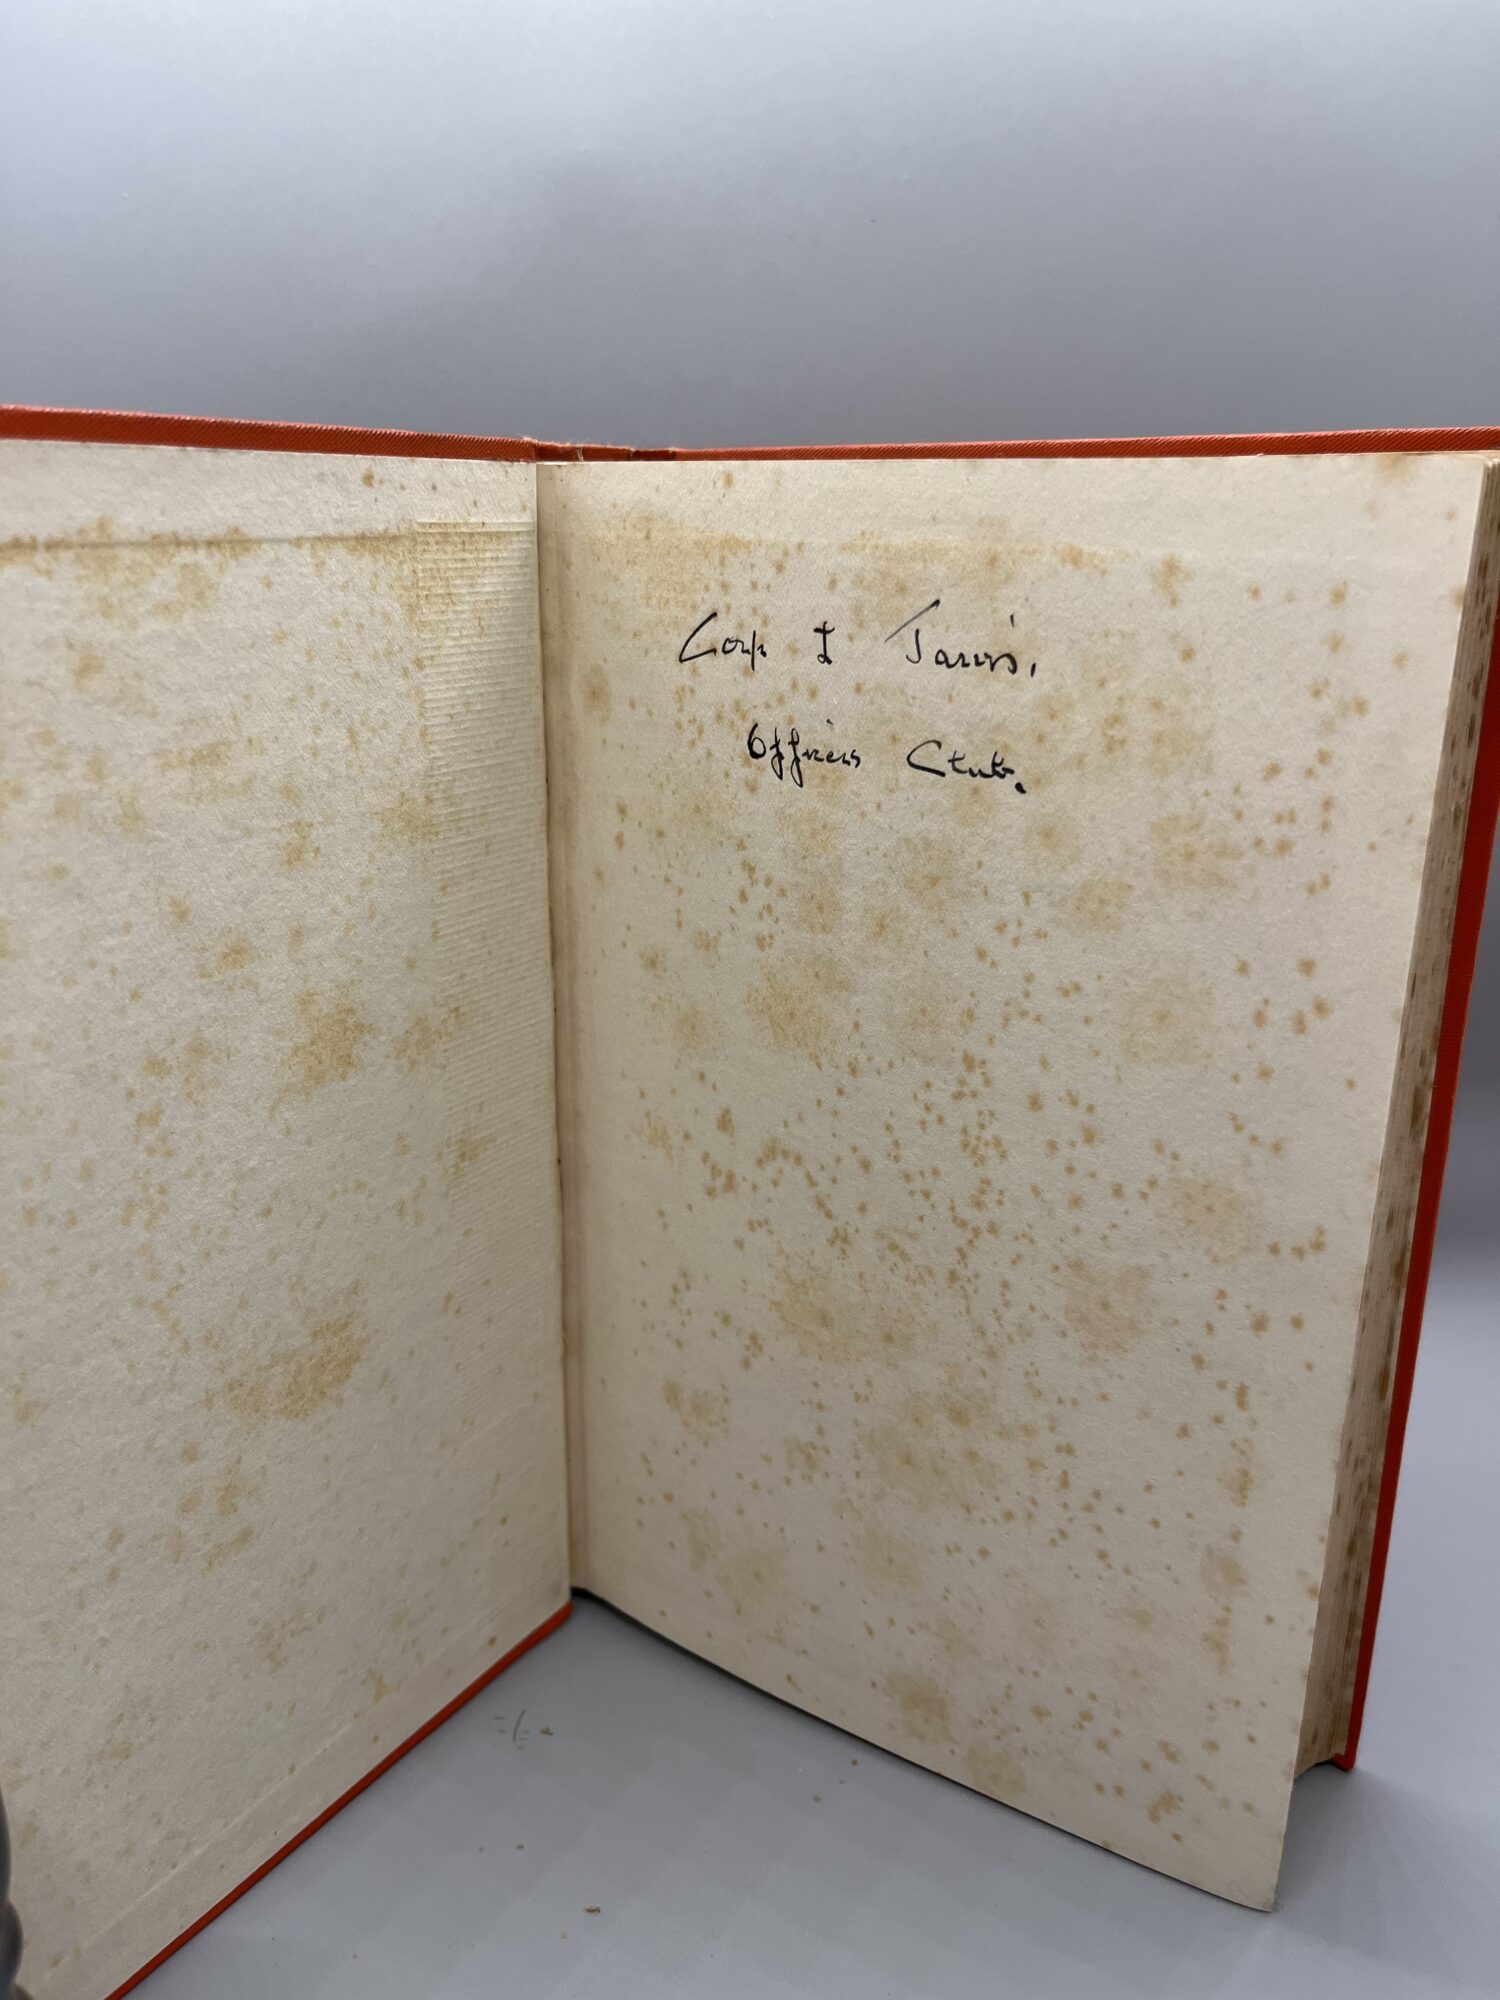 Corp I Jarvis.
Officers Club.